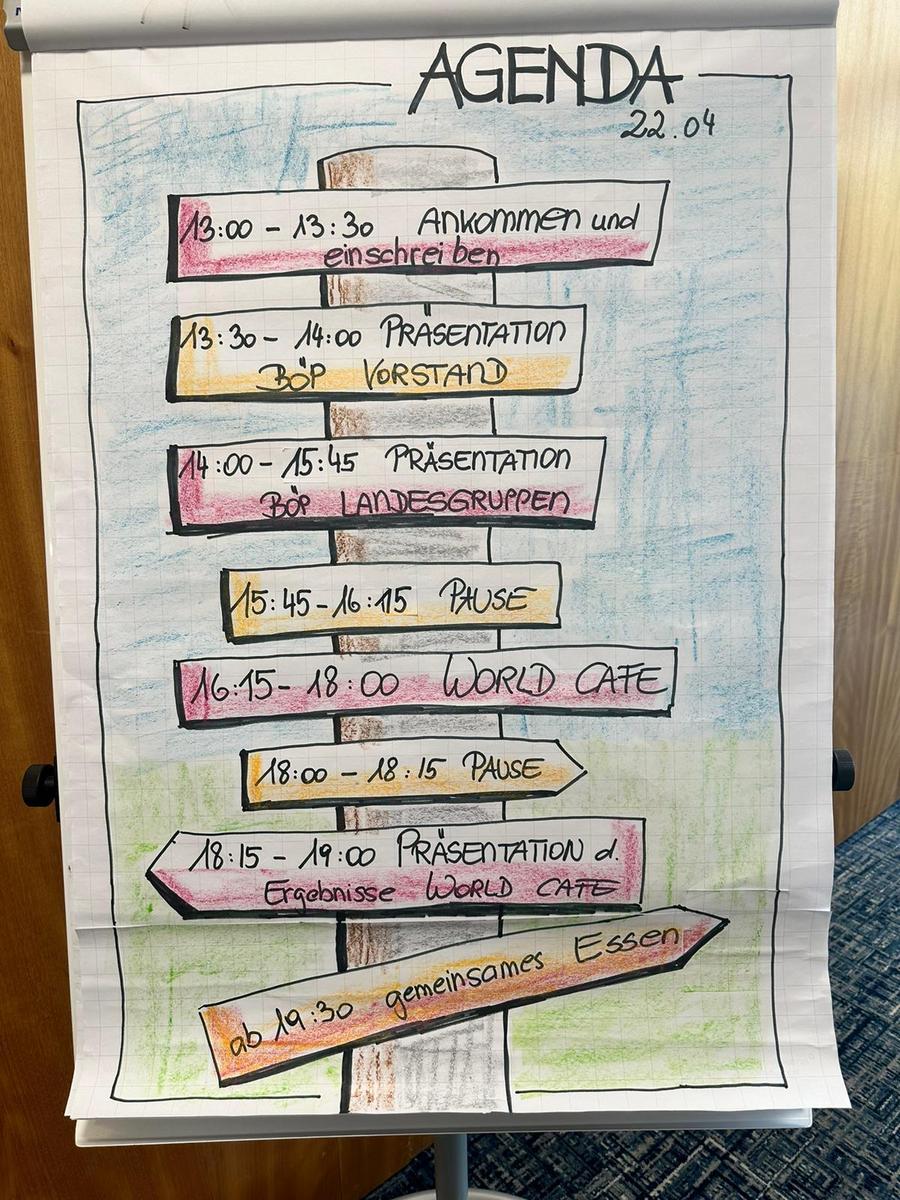 AGENDA
22.04
13:00 - 13:30 Ankommen und
einschreiben
13:30 - 14:00 PRÄSENTATION
BÖP VORSTAND
14:00 - 15:45 PRÄSENTATION
BÖP LANDESGRUPPEN
15:45 - 16:15 PAUSE
16:15 - 18:00 WORLD CAFE
18:00 - 18:15 PAUSE
18:15 - 19:00 PRÄSENTATION d.
Ergebnisse WORLD CAFE
ab 19:30 gemeinsames Essen